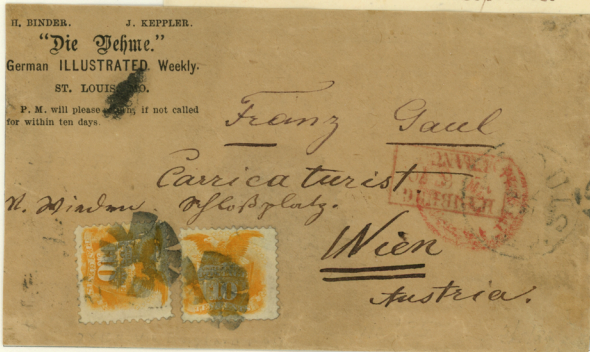 H. BINDER. J. KEPPLER.
"Die Vehme."
German ILLUSTRATED Weekly.
ST. LOUIS, MO.
P. M. will please return, if not called
for within ten days.
Franz Gaul
Carricaturist
N. Wieden. Schloßplatz.
Wien
Austria.
10